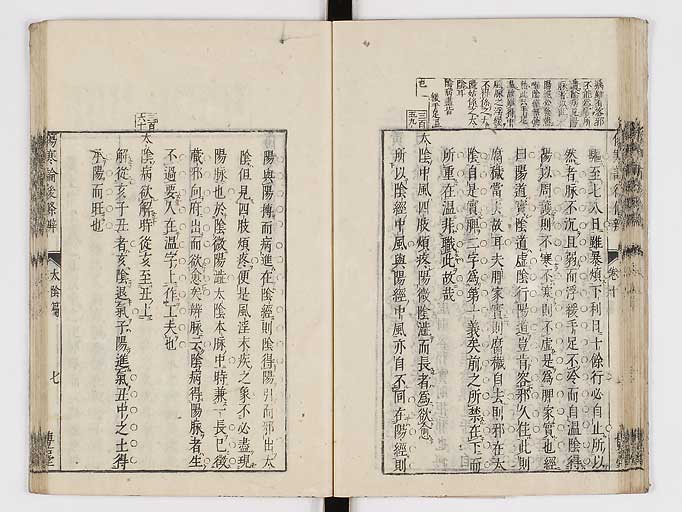 驅至七八日雖暴煩下利日十餘行必自止所以
然者脉不沉且弱而浮緩手足不冷而自溫陰得
陽以周護則不寒不寒則不虛是爲脾家實也經
曰陽道實陰道虛陰行陽道豈肯容邪久住此則
腐穢當去故耳夫脾家實則腐穢自去則邪在太
陰自是實脾二字爲第一義矣前之所禁在下而
所重在溫非職此故哉
三百五九
太陰中風四肢煩疼陽微陰濇而長者爲欲愈
所以陰經中風與陽經中風亦自不同在陽經則
陽與陽搏而病進在陰經則陰得陽引而邪出太
陰但見四肢煩疼便是風淫末疾之象不必盡現
陽脉也於陰微陽濇太陰本脉中時兼一長已後
藏邪向府出而欲愈矣辨脉云陰病得陽脉者生
不過要人在溫字上作工夫也
三百六十
太陰病欲解時從亥至丑上
解從亥子丑者亥陰退氣子陽進氣丑中之土得
承陽而旺也
傷寒論後條辨
太陰篇
七
卷十